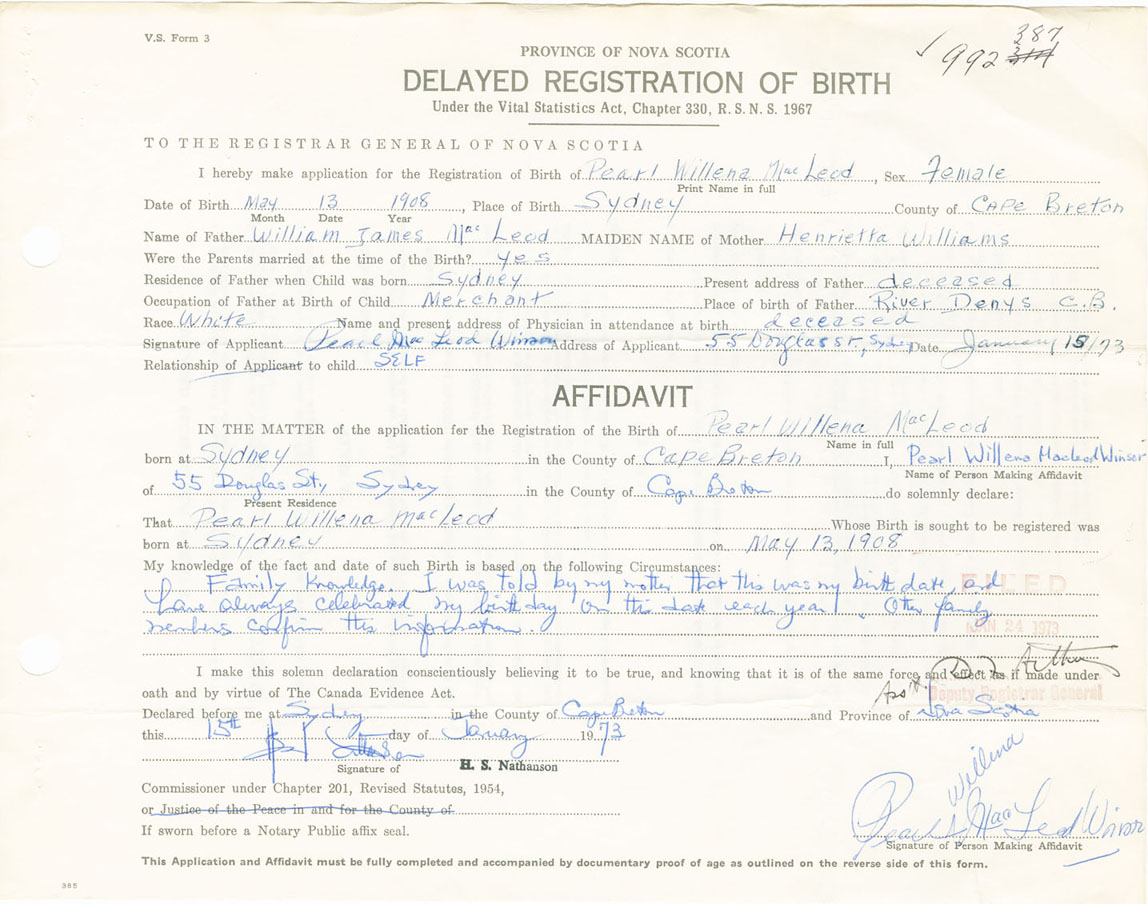 V.S. Form 3
387
992
PROVINCE OF NOVA SCOTIA
DELAYED REGISTRATION OF BIRTH
Under the Vital Statistics Act, Chapter 330, R.S.N.S. 1967
TO THE REGISTRAR GENERAL OF NOVA SCOTIA
I hereby make application for the Registration of Birth of Pearl Willena MacLeod, Sex Female
Print Name in full
Date of Birth May 13 1908, Place of Birth Sydney County of Cape Breton
Month Date Year
Name of Father William James MacLeod MAIDEN NAME of Mother Henrietta Williams
Were the Parents married at the time of the Birth? yes
Residence of Father when Child was born Sydney Present address of Father deceased
Occupation of Father at Birth of Child Merchant Place of birth of Father River Denys C.B.
Race White Name and present address of Physician in attendance at birth deceased
Signature of Applicant Pearl MacLeod Winsor Address of Applicant 55 Douglas St., Sydney Date January 15/73
Relationship of Applicant to child SELF
AFFIDAVIT
IN THE MATTER of the application for the Registration of the Birth of Pearl Willena MacLeod
Name in full
born at Sydney in the County of Cape Breton I, Pearl Willena MacLeod Winsor
Name of Person Making Affidavit
of 55 Douglas St, Sydney in the County of Cape Breton do solemnly declare:
Present Residence
That Pearl Willena MacLeod Whose Birth is sought to be registered was
born at Sydney on May 13, 1908
My knowledge of the fact and date of such Birth is based on the following Circumstances:
Family Knowledge. I was told by my mother that this was my birth date and
have always celebrated my birthday on this date each year. Other family
members confirm this information.
FILED
JAN 24 1973
I make this solemn declaration conscientiously believing it to be true, and knowing that it is of the same force and effect as if made under
oath and by virtue of The Canada Evidence Act.
Ass't Deputy Registrar General
Declared before me at Sydney in the County of Cape Breton and Province of Nova Scotia
this 15th day of January 1973
Signature of H. S. Nathanson
Commissioner under Chapter 201, Revised Statutes, 1954,
or Justice of the Peace in and for the County of
If sworn before a Notary Public affix seal.
Pearl Willena MacLeod Winsor
Signature of Person Making Affidavit
This Application and Affidavit must be fully completed and accompanied by documentary proof of age as outlined on the reverse side of this form.
385